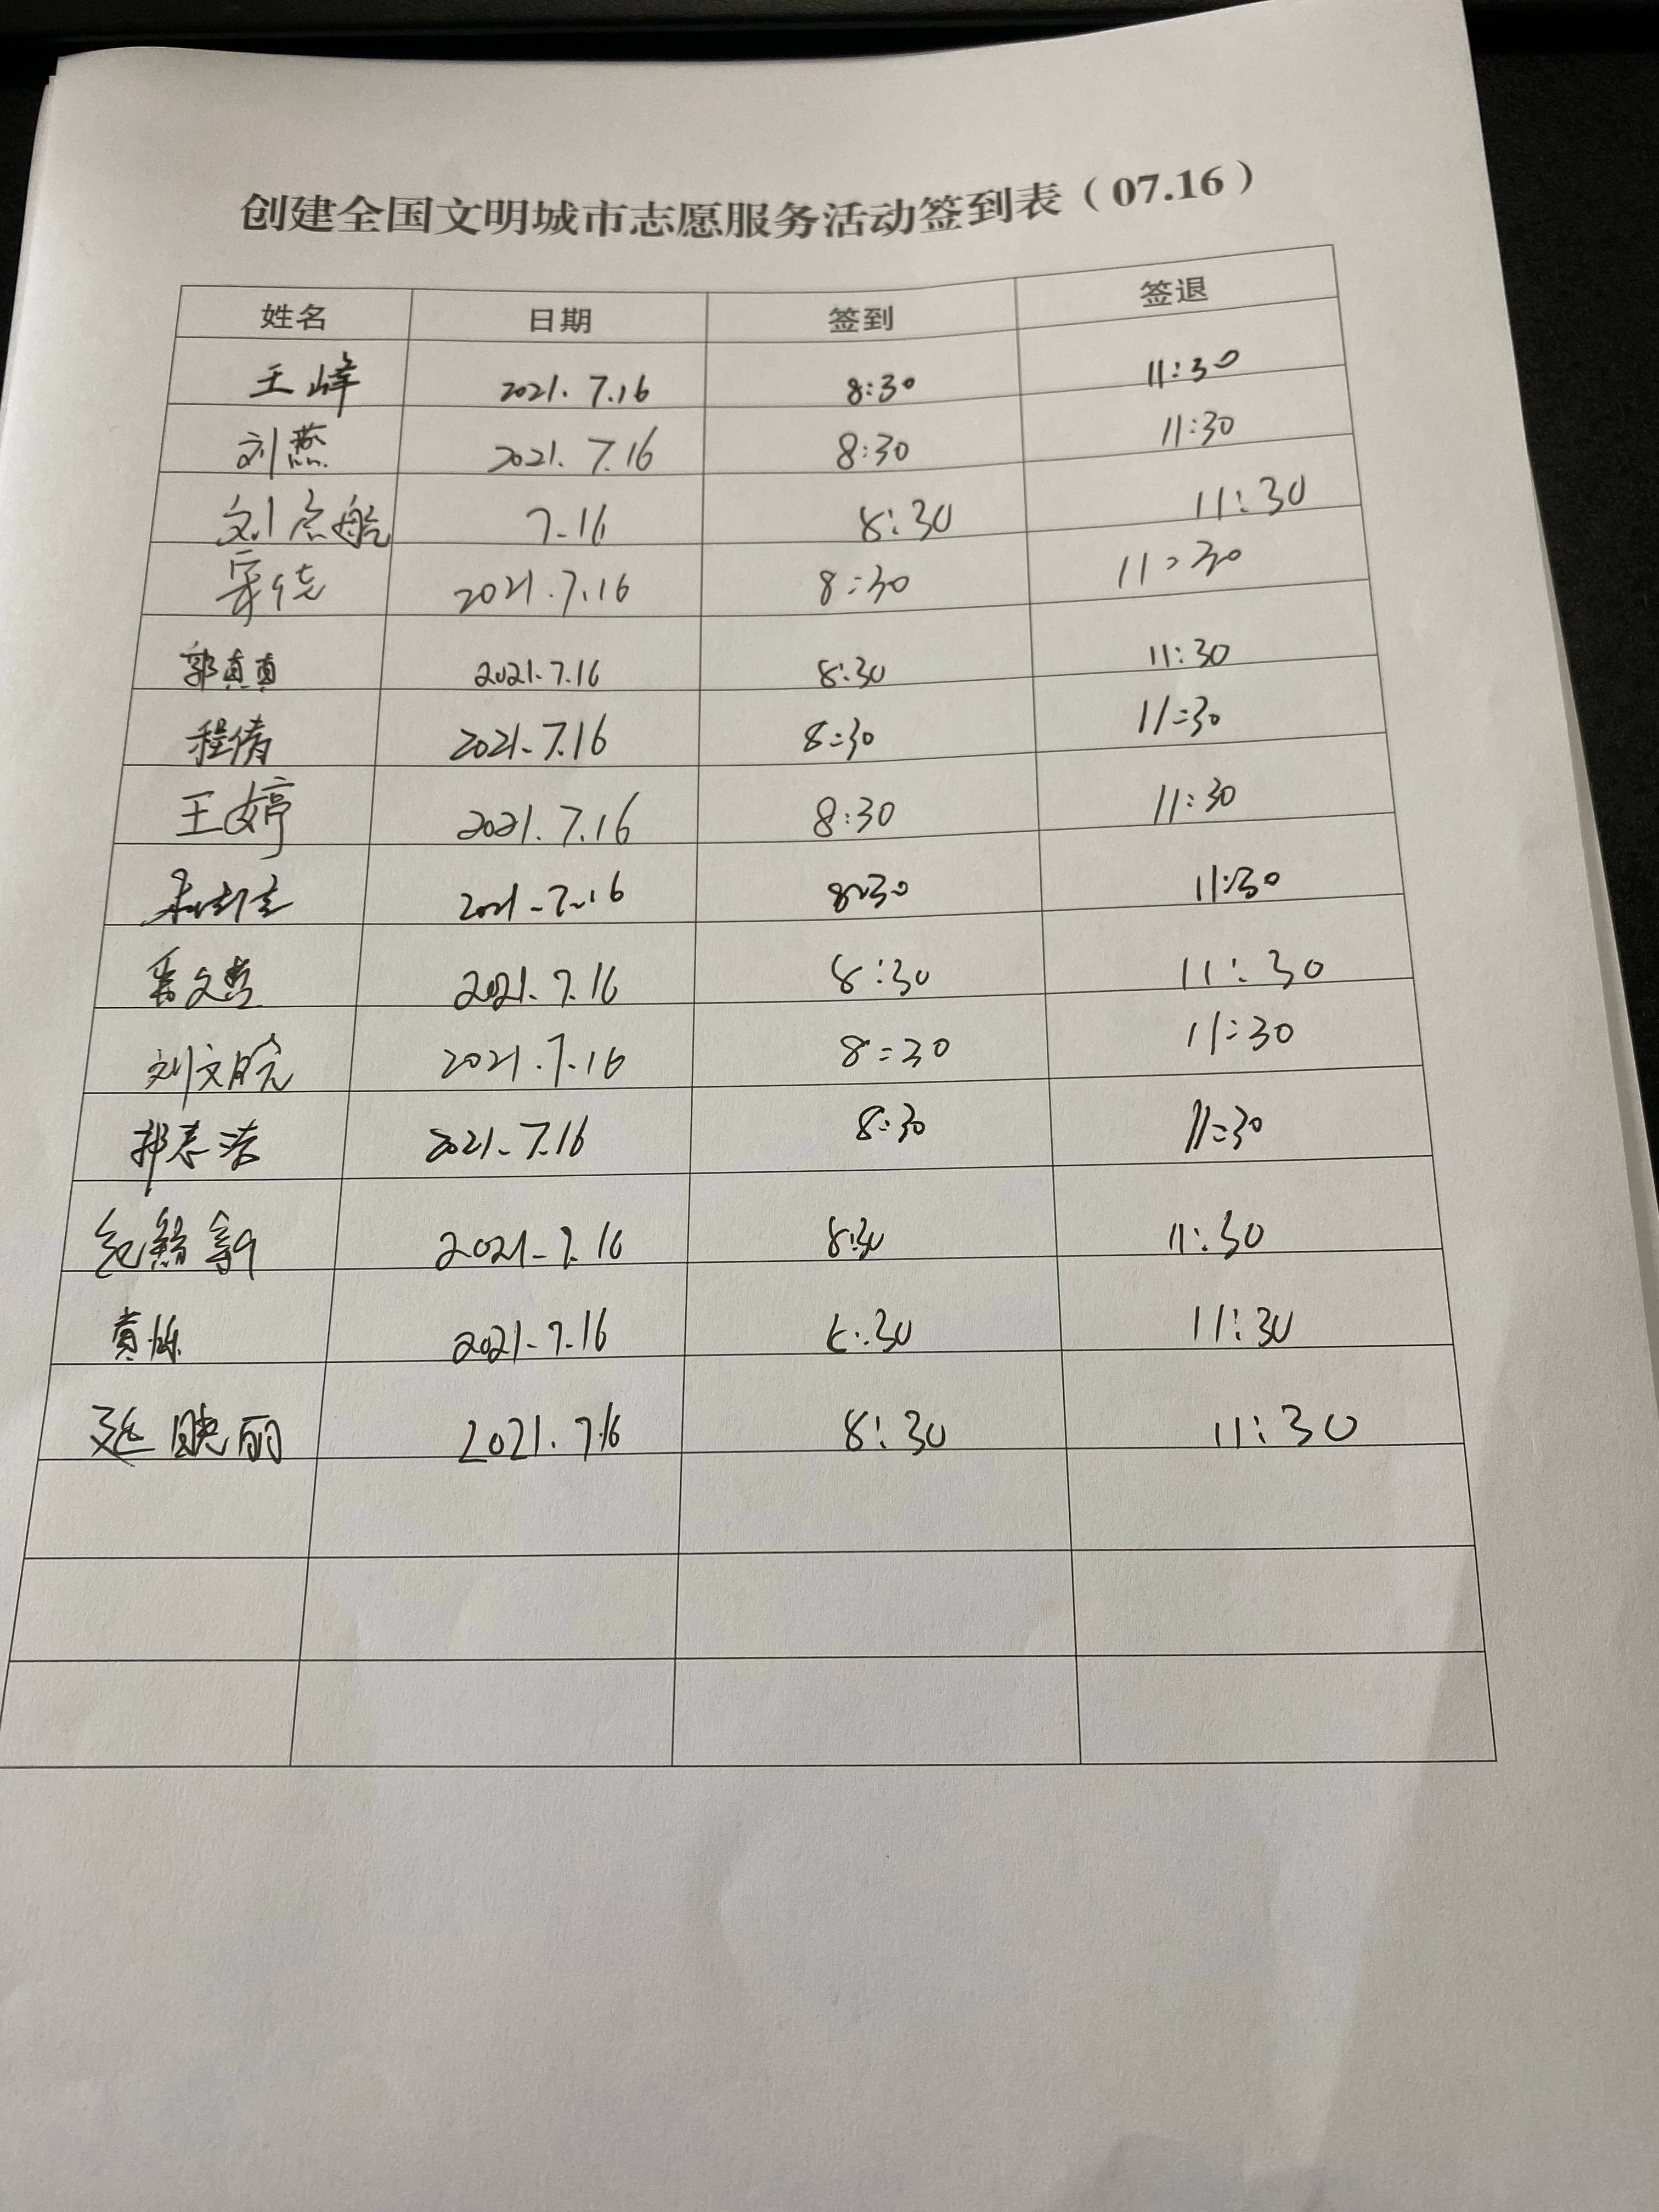 创建全国文明城市志愿服务活动签到表（07.16）
姓名 日期 签到 签退
王峰 2021.7.16 8:30 11:30
刘燕 2021.7.16 8:30 11:30
刘启航 7-16 8:30 11:30
2021.7.16 8:30 11:30
郭真真 2021.7.16 8:30 11:30
程倩 2021.7.16 8:30 11:30
王婷 2021.7.16 8:30 11:30
2021-7-16 8:30 11:30
2021.7.16 8:30 11:30
刘文皖 2021.7.16 8:30 11:30
2021.7.16 8:30 11:30
2021-7.16 8:30 11:30
黄 2021-7-16 8:30 11:30
延映丽 2021.7.16 8:30 11:30